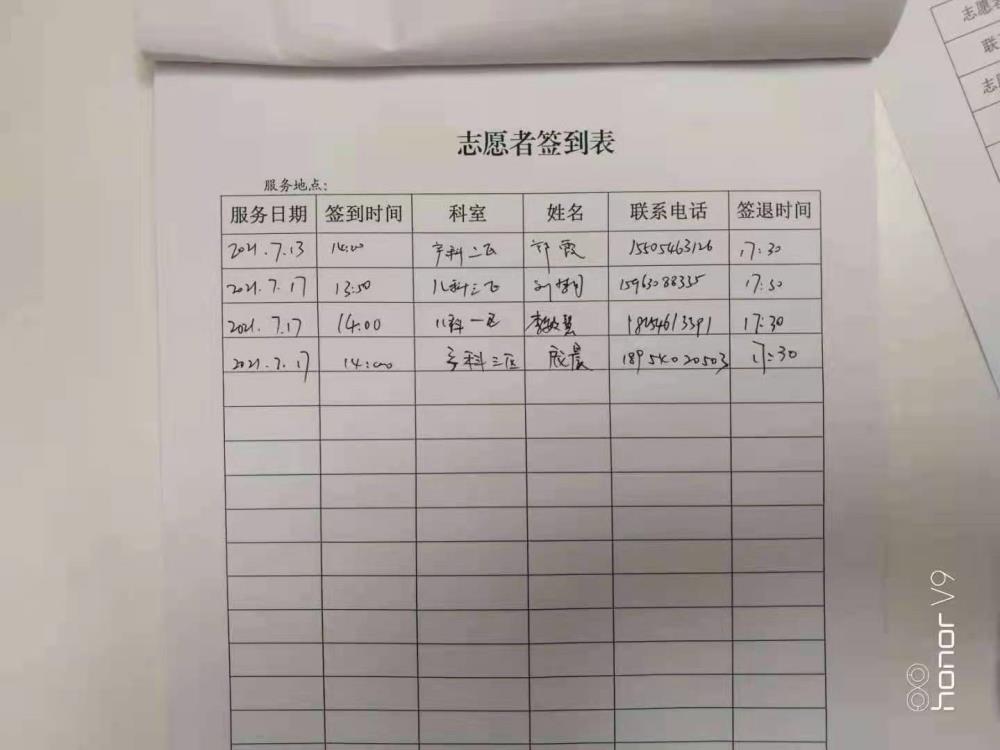 志愿者签到表
服务地点：
服务日期 签到时间 科室 姓名 联系电话 签退时间
2021.7.13 14:00 产科二区 霞 15505463126 17:30
2021.7.17 13:50 儿科三区 15963088335 17:50
2021.7.17 14:00 儿科一区 李敏慧 17:30
2021.7.17 14:00 产科三区 晨 18954020503 17:30
志愿
联
志
honor V9